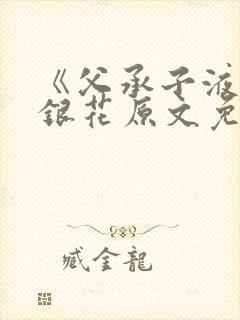 《父承子液
銀花原文免
臧金龍